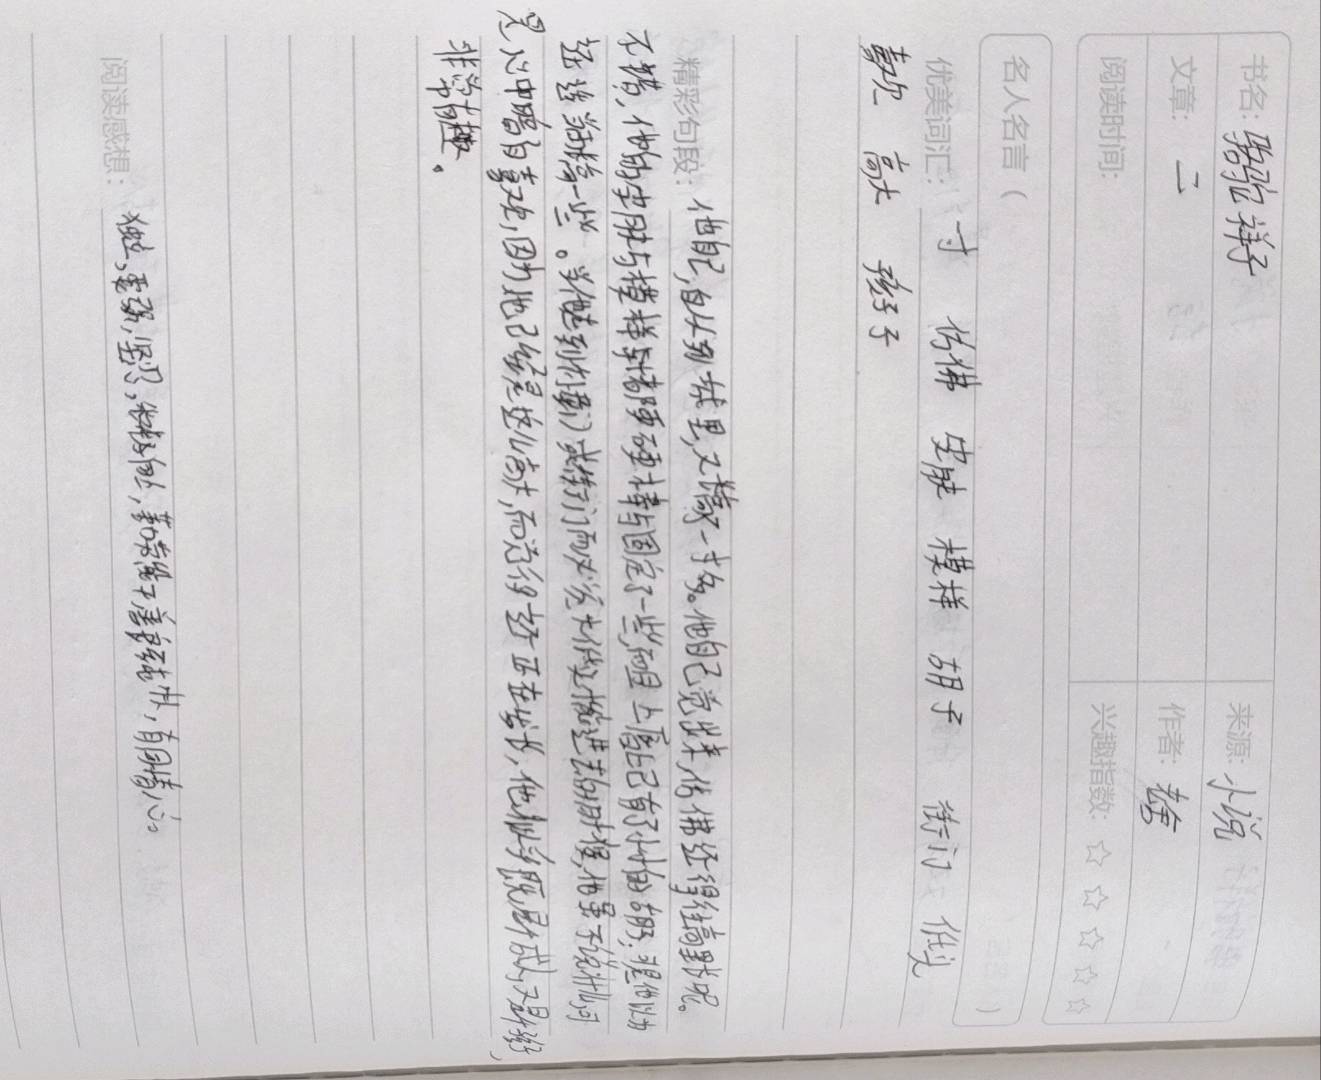 书名：骆驼祥子 来源：小说
文章：二 作者：老舍
阅读时间： 兴趣指数：☆☆☆☆☆
名人名言（ ）
优美词汇：寸 仿佛 皮肤 模样 胡子 衙门 低头
喜欢 高大 孩子
精彩句段：他自己，自从到城里，又长高了一寸多。他自己觉出来，仿佛还得往高里长呢。
不错，他的皮肤与模样都更硬棒与固定了一些，而且上唇上已有了小小的胡子；可是他以为
还应当再长高一些。当他走到个小屋门或街门而必须大低头才能进去的时候，他虽不说什么，可
是心中暗自喜欢，因为他已经是这么高大，而觉得好 正在发长，他似乎既是个成人，又是个孩子，
非常有趣。
阅读感想：独立，要强，坚忍，
善良 ，有同情心。